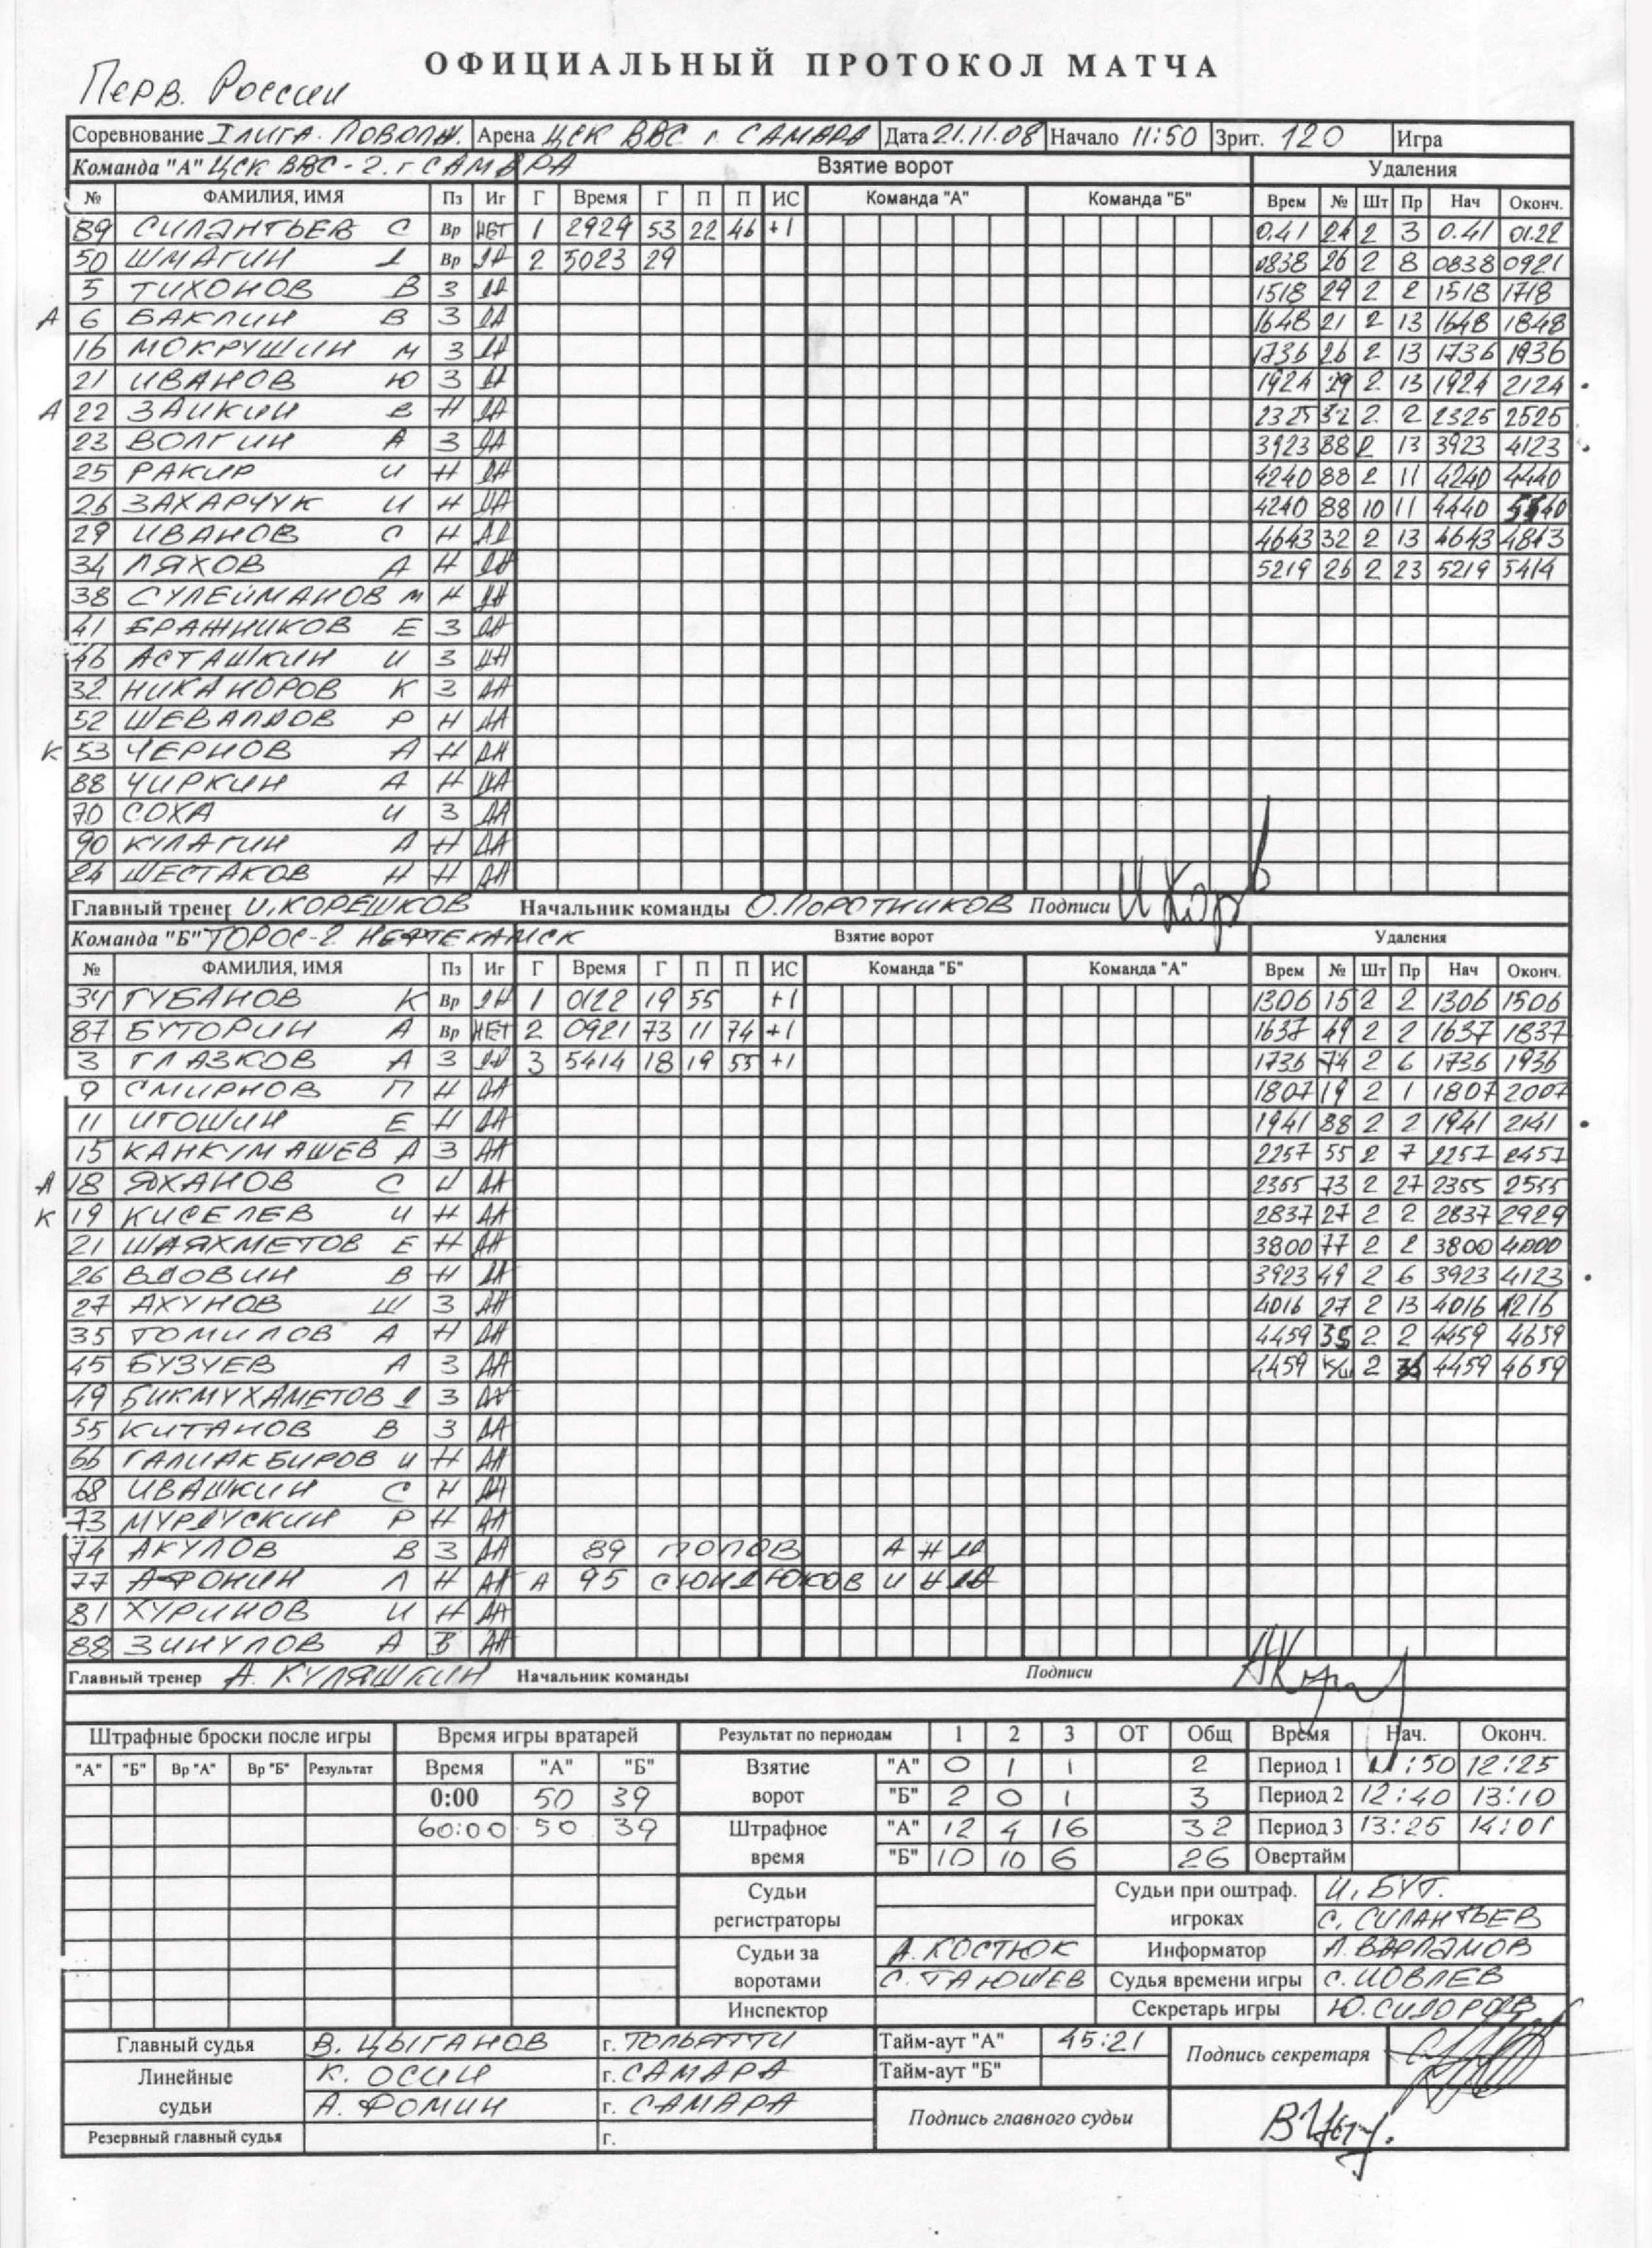 ОФИЦИАЛЬНЫЙ ПРОТОКОЛ МАТЧА
Перв. России
Соревнование I ЛИГА. ПОВОЛЖ. Арена ЦСК ВВС г. САМАРА Дата 21.11.08 Начало 11:50 Зрит. 120 Игра
Команда "А" ЦСК ВВС-2. г САМАРА Взятие ворот Удаления
№ ФАМИЛИЯ, ИМЯ Пз Иг Г Время Г П П ИС Команда "А" Команда "Б" Врем № Шт Пр Нач Оконч.
89 СИЛАНТЬЕВ С Вр НЕТ 1 2929 53 22 46 +1 0.41 24 2 3 0.41 01.22
50 ШМАГИН Д Вр ДА 2 5023 29 0838 26 2 8 0838 0921
5 ТИХОНОВ В З ДА 1518 29 2 2 1518 1718
А 6 БАКЛИН В З ДА 1648 21 2 13 1648 1848
16 МОКРУШИН М З ДА 1736 26 2 13 1736 1936
21 ИВАНОВ Ю З ДА 1924 29 2 13 1924 2124
А 22 ЗАИКИН В Н ДА 2325 32 2 2 2325 2525
23 ВОЛГИН А З ДА 3923 88 2 13 3923 4123
25 РАКИР И Н ДА 4240 88 2 11 4240 4440
26 ЗАХАРЧУК И Н ДА 4240 88 10 11 4440 5440
29 ИВАНОВ С Н ДА 4643 32 2 13 4643 4843
34 ЛЯХОВ А Н ДА 5219 26 2 23 5219 5414
38 СУЛЕЙМАНОВ М Н ДА
41 БРАЖНИКОВ Е З ДА
46 АСТАШКИН И З ДА
32 НИКАНОРОВ К З ДА
52 ШЕВАЛДОВ Р Н ДА
К 53 ЧЕРНОВ А Н ДА
88 ЧИРКИН А Н ДА
70 СОХА И З ДА
90 КУЛАГИН А Н ДА
24 ШЕСТАКОВ Н Н ДА
Главный тренер И. КОРЕШКОВ Начальник команды О. ПОРОТНИКОВ Подписи
Команда "Б" ТОРОС-2 НЕФТЕКАМСК Взятие ворот Удаления
№ ФАМИЛИЯ, ИМЯ Пз Иг Г Время Г П П ИС Команда "Б" Команда "А" Врем № Шт Пр Нач Оконч.
39 ГУБАНОВ К Вр ДА 1 0122 19 55 +1 1306 15 2 2 1306 1506
87 БУТОРИН А Вр НЕТ 2 0921 73 11 74 +1 1637 49 2 2 1637 1837
3 ГЛАЗКОВ А З ДА 3 5414 18 19 55 +1 1736 74 2 6 1736 1936
9 СМИРНОВ П Н ДА 1807 19 2 1 1807 2007
11 ИГОШИН Е Н ДА 1941 88 2 2 1941 2141
15 КАНКУМАШЕВ А З ДА 2257 55 2 7 2257 2457
А 18 ЯХАНОВ С Н ДА 2355 73 2 27 2355 2555
К 19 КИСЕЛЕВ И Н ДА 2837 27 2 2 2837 2929
21 ШАЯХМЕТОВ Е Н ДА 3800 77 2 2 3800 4000
26 ВДОВИН В Н ДА 3923 49 2 6 3923 4123
27 АХУНОВ Ш З ДА 4016 27 2 13 4016 4216
35 ТОМИЛОВ А Н ДА 4459 35 2 2 4459 4659
45 БУЗУЕВ А З ДА 4459 К/Ш 2 4459 4659
49 БИКМУХАМЕТОВ Д З ДА
55 КИТАНОВ В З ДА
66 ГАЛИАКБИРОВ И Н ДА
68 ИВАШКИН С Н ДА
73 МУРДУСКИН Р Н ДА
74 АКУЛОВ В З ДА 89 ПОПОВ А Н ДА
77 АФОНИН Л Н ДА А 95 СЮНДЮКОВ И Н ДА
81 ХУРИНОВ И Н ДА
88 ЗИНУЛОВ А З ДА
Главный тренер А. КУЛЯШКИН Начальник команды Подписи
Штрафные броски после игры Время игры вратарей Результат по периодам 1 2 3 ОТ Общ Время Нач. Оконч.
"А" "Б" Вр "А" Вр "Б" Результат Время "А" "Б" Взятие ворот "А" 0 1 1 2 Период 1 11:50 12:25
0:00 50 39 "Б" 2 0 1 3 Период 2 12:40 13:10
60:00 50 39 Штрафное время "А" 12 4 16 32 Период 3 13:25 14:01
"Б" 10 10 6 26 Овертайм
Судьи регистраторы Судьи при оштраф. игроках И. БУТ.
С. СИЛАНТЬЕВ
Судьи за воротами А. КОСТЮК Информатор А. ВАРЛАМОВ
С. ТАЮШЕВ Судья времени игры С. ИОВЛЕВ
Инспектор Секретарь игры Ю. СИДОРОВ
Главный судья В. ЦЫГАНОВ г. ТОЛЬЯТТИ Тайм-аут "А" 45:21 Подпись секретаря
Линейные судьи К. ОСИП г. САМАРА Тайм-аут "Б"
А. ФОМИН г. САМАРА Подпись главного судьи
Резервный главный судья г.